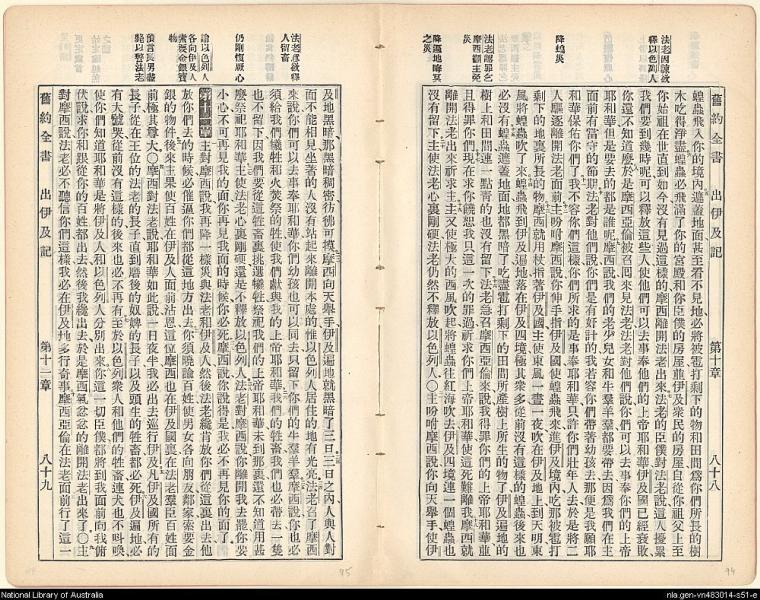 舊約全書 出伊及記 第十章 八十八
法老因諫欲釋以色列人
降蝗災
法老認罪乞摩西禱主免災
降徧地晦冥之災
蝗蟲飛入你的境內遮蓋地面甚至看不見地必將被雹打剩下的物和田間為你們所長的樹
木吃得淨盡蝗蟲必飛滿了你的宮殿和你臣僕的房屋並伊及衆民的房屋自從你祖父上至
你始祖在世直到如今沒有見過這樣的摩西離開法老出來法老的臣僕對法老說這人擾累
我們要到幾時呢可以釋放這些人使他們可以去事奉他們的上帝耶和華伊及國已經衰敗
你還不知道麼於是摩西亞倫被召回來見法老法老對他們說你們可以去事奉你們的上帝
耶和華但是要去的都是誰呢摩西說我們的老少兒女和牛羣羊羣都要帶去因爲我們在主
面前有當守的節期法老對他們說你們是有奸計的我若容你們帶著幼孩去那便是我願耶
和華保佑你們了我不容你們這樣你們所求的是事奉耶和華只許你們壯年人去於是將二
人攆逐離開法老面前主吩咐摩西說你伸手指伊及國使蝗蟲飛來進伊及境內吃那被雹打
剩下的地裏所長的物摩西就用杖指著伊及國主使東風一晝一夜吹在伊及地上到天明東
風將蝗蟲吹了來蝗蟲飛到伊及遍地落在伊及四境極其衆多從前沒有這樣的蝗蟲後來也
必沒有蝗蟲遮蓋地面地都黑暗了吃盡雹打剩下的田間所產樹上所生的物了伊及遍地的
樹上和田間連一點靑的也沒有留下法老急召摩西亞倫來說我得罪你們的上帝耶和華並
且得罪你們現在求你饒恕我只這一次的罪過祈求你們上帝耶和華使這死難離我摩西就
離開法老出來祈求主主又使極大的西風吹起將蝗蟲往紅海吹去伊及四境連一個蝗蟲也
沒有留下主使法老心裏剛硬法老仍然不釋放以色列人〇主吩咐摩西說你向天舉手使伊
法老願欲釋人留畜
仍剛愎厥心
諭以色列人各向伊及人索要金銀寶物
預言民男暫斃以警法老
及地黑暗那黑暗稠密彷彿可摸摩西向天舉手伊及遍地就黑暗了三日三日之內人與人對
面不能相見坐著的人沒有站起來離開本處的惟以色列人居住的地有光亮法老召了摩西
來說你們可以去事奉耶和華你們幼孩也可以同去只留下你們的牛羣羊羣摩西說你也必
須給我們犧牲和火焚祭的牲使我們獻與我的上帝耶和華我們的牲畜我們也必帶去一隻
也不留下因我們要從這牲畜裏挑選犧牲祭祀我們的上帝耶和華未到那裏還不知道用甚
麼祭祀耶和華主使法老心裏剛硬還是不釋放以色列人法老對摩西說你離開我去罷你要
小心不可再見我的面你再見我面的時候你必死摩西說你說得是我必不再見你的面了
第十一章主對摩西說我再降一樣災與法老和伊及人然後法老纔肯放你們從這裏出去他
放你們去的時候必催逼你們都從這地方出去你須曉諭百姓使男女各向朋友鄰家索要金
銀的物件後來主果使百姓在伊及人面前沾恩這位摩西也在伊及國裏在法老羣臣百姓面
前極其尊大〇摩西對法老說耶和華如此說一日夜半我必出去巡行伊及凡伊及國所有的
長子從在王位的法老的長子直到磨後的奴婢的長子以及頭生的牲畜都必死伊及遍地必
有大號哭從前沒有這樣的後來也必不再有至於以色列衆人和他們的牲畜連犬也不叫喚
使你們知道耶和華是將伊及人和以色列人分別出來你這一切臣僕都將到我面前向我俯
伏說求你和跟從你的百姓都出去然後我纔出去於是摩西氣忿忿的離開法老出來了〇主
對摩西說法老必不聽信你們這樣我必在伊及地多行奇事摩西亞倫在法老面前行了這一
舊約全書 出伊及記 第十一章 八十九
95
94
National Library of Australia
nla.gen-vn483014-s51-e